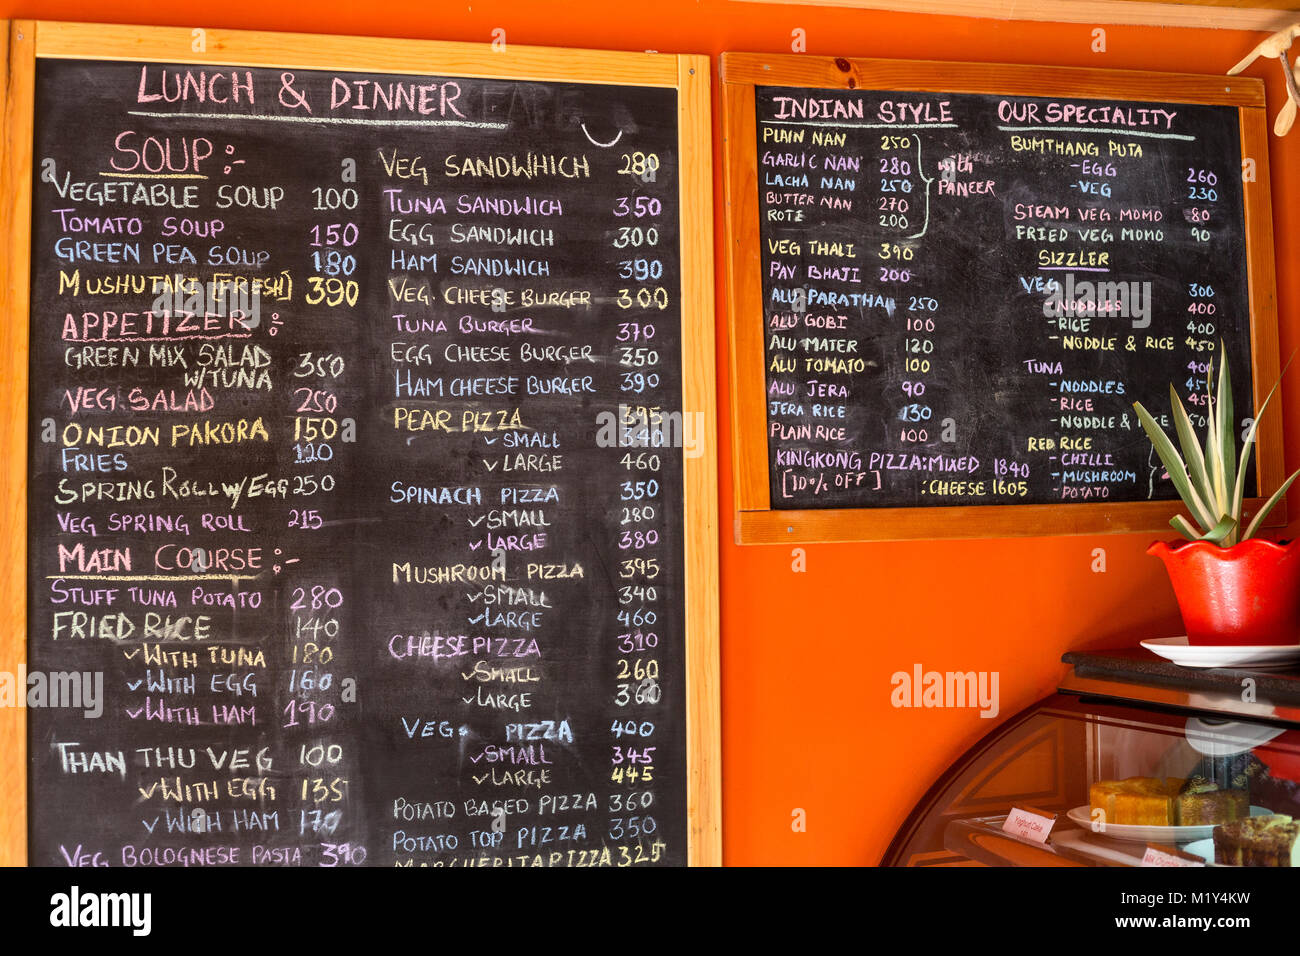 LUNCH & DINNER
SOUP :-
VEGETABLE SOUP 100
TOMATO SOUP 150
GREEN PEA SOUP 180
MUSHUTAKI [FRESH] 390
APPETIZER :-
GREEN MIX SALAD
W/TUNA 350
VEG SALAD 250
ONION PAKORA 150
FRIES 120
SPRING ROLL W/EGG 250
VEG SPRING ROLL 215
MAIN COURSE :-
STUFF TUNA POTATO 280
FRIED RICE 140
✓WITH TUNA 180
✓WITH EGG 160
✓WITH HAM 190
THAN THU VEG 100
✓WITH EGG 135
✓WITH HAM 170
VEG BOLOGNESE PASTA 390
VEG SANDWHICH 280
TUNA SANDWICH 350
EGG SANDWICH 300
HAM SANDWICH 390
VEG. CHEESE BURGER 300
TUNA BURGER 370
EGG CHEESE BURGER 350
HAM CHEESE BURGER 390
PEAR PIZZA 395
✓SMALL 340
✓LARGE 460
SPINACH PIZZA 350
✓SMALL 280
✓LARGE 380
MUSHROOM PIZZA 395
✓SMALL 340
✓LARGE 460
CHEESE PIZZA 310
✓SMALL 260
✓LARGE 360
VEG. PIZZA 400
✓SMALL 345
✓LARGE 445
POTATO BASED PIZZA 360
POTATO TOP PIZZA 350
MARGHERITA PIZZA 325
INDIAN STYLE
PLAIN NAN 250
GARLIC NAN 280
LACHA NAN 250
BUTTER NAN 270
ROTI 200
with
PANEER
VEG THALI 390
PAV BHAJI 200
ALU PARATHA 250
ALU GOBI 100
ALU MATER 120
ALU TOMATO 100
ALU JERA 90
JERA RICE 130
PLAIN RICE 100
KINGKONG PIZZA:MIXED 1840
[10% OFF] :CHEESE 1605
OUR SPECIALITY
BUMTHANG PUTA
-EGG 260
-VEG 230
STEAM VEG MOMO 80
FRIED VEG MOMO 90
SIZZLER
VEG 300
-NODDLES 400
-RICE 400
-NODDLE & RICE 450
TUNA 400
-NODDLES 45
-RICE 450
-NODDLE & RICE 500
RED RICE
-CHILLI
-MUSHROOM
-POTATO
Yoghurt Cake
alamy
alamy
Image ID: M1Y4KW
www.alamy.com